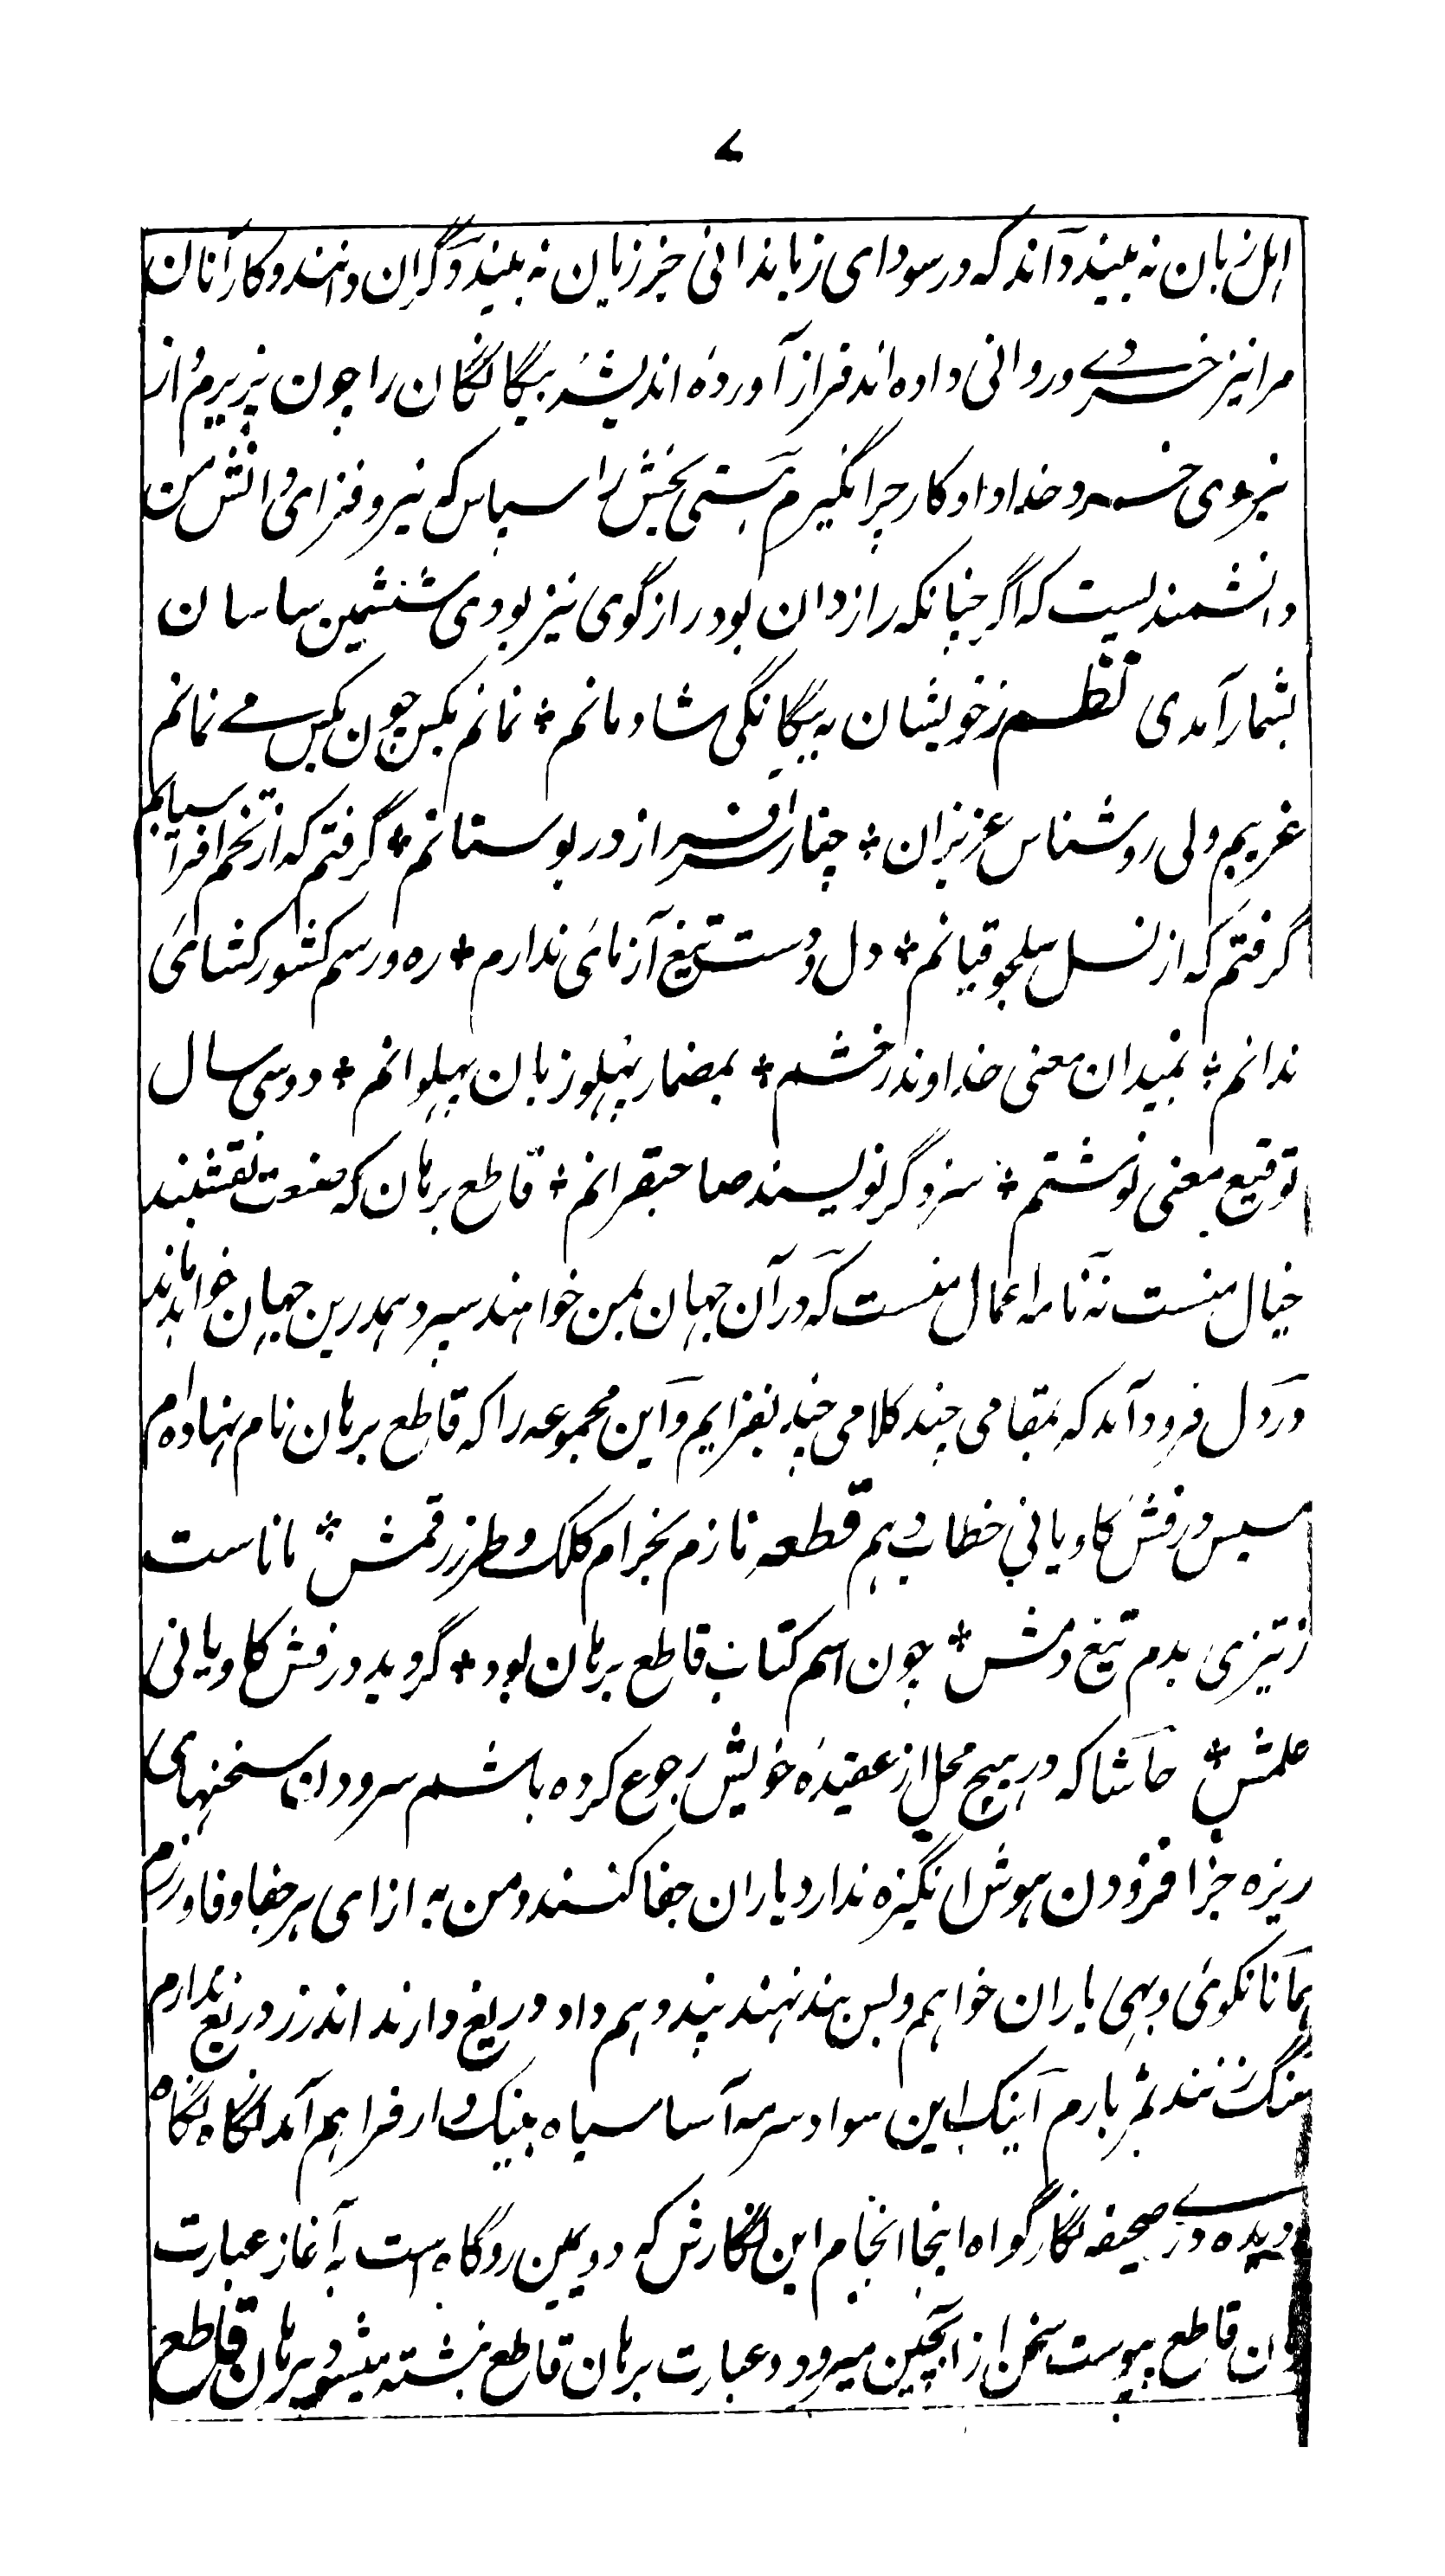 ۷
اہل زبان نہ بیند و آنند کہ در سودای زباندانی جز زیان نہ بیند و دگران دانند و کار آنان
مرا نیز خردے و روانی دادہ اند فراز آوردۂ اندیشۂ بیگانگان را چون پذیرم و از
نیروی خرد خداداد کار چرا نگیرم ہستی بخش را سپاس کہ نیرو فزای دانش من
دانشمندیست کہ اگر چنانکہ رازدان بود راز گوی نیز بودی ششمین ساسان
بشمار آمدی نظم ز خویشان بہ بیگانگی شادمانم * نمانم بکس چون بکس مے نمانم
غریبم ولی روشناس عزیزان * چنار سرافراز در بوستانم * گرفتم کہ از تخم افراسیابم
گرفتم کہ از نسل سلجوقیانم * دل و دست تیغ آزمائی ندارم * رہ و رسم کشور کشائی
ندانم * بمیدان معنی خداوند رخشم * بمضمار پہلو زبان پہلوانم * دو سی سال
توقیع معنی نوشتم * سزد گر نویسند صاحبقرانم * قاطع برہان کہ صنعت نقشبند
خیال منست نہ نامہ اعمال منست کہ در آن جہان بمن خواہند سپرد ہمدرین جہان خواہد ماند
در دل فرود آمد کہ بمقامی چند کلامی چند بفزایم و این مجموعہ را کہ قاطع برہان نام نہادہ ام
سپس درفش کاویانی خطاب دہم قطعہ نازم بخرام کلک و طرز رقمش * ماناست
ز تیزی بدم تیغ دمش * چون اسم کتاب قاطع برہان بود * گردید درفش کاویانی
علمش * حاشا کہ در ہیچ محل از عقیدۂ خویش رجوع کردہ باشم سرودن سخنہای
ریزہ جز افزودن ہوش انگیزہ ندارد یاران جفا کنند و من بہ ازای ہر جفا وفا ورزم
ہمانا نکوئی و بہی یاران خواہم و بس بند نہند پند دہم داد دریغ دارند اندرز دریغ ندارم
سنگ زنند ثمر بارم اینک این سواد سرمہ آسا سیاہ بینک وار فراہم آمد نگاہ نگاہ
دیدہ ورے صحیفہ نگار گواہ اینجا انجام این نگارش کہ دویمین روگاہ است بہ آغاز عبارت
قاطع پیوست سخن از آنچنین میرود و عبارت برہان قاطع نبشتہ میشود برہان قاطع